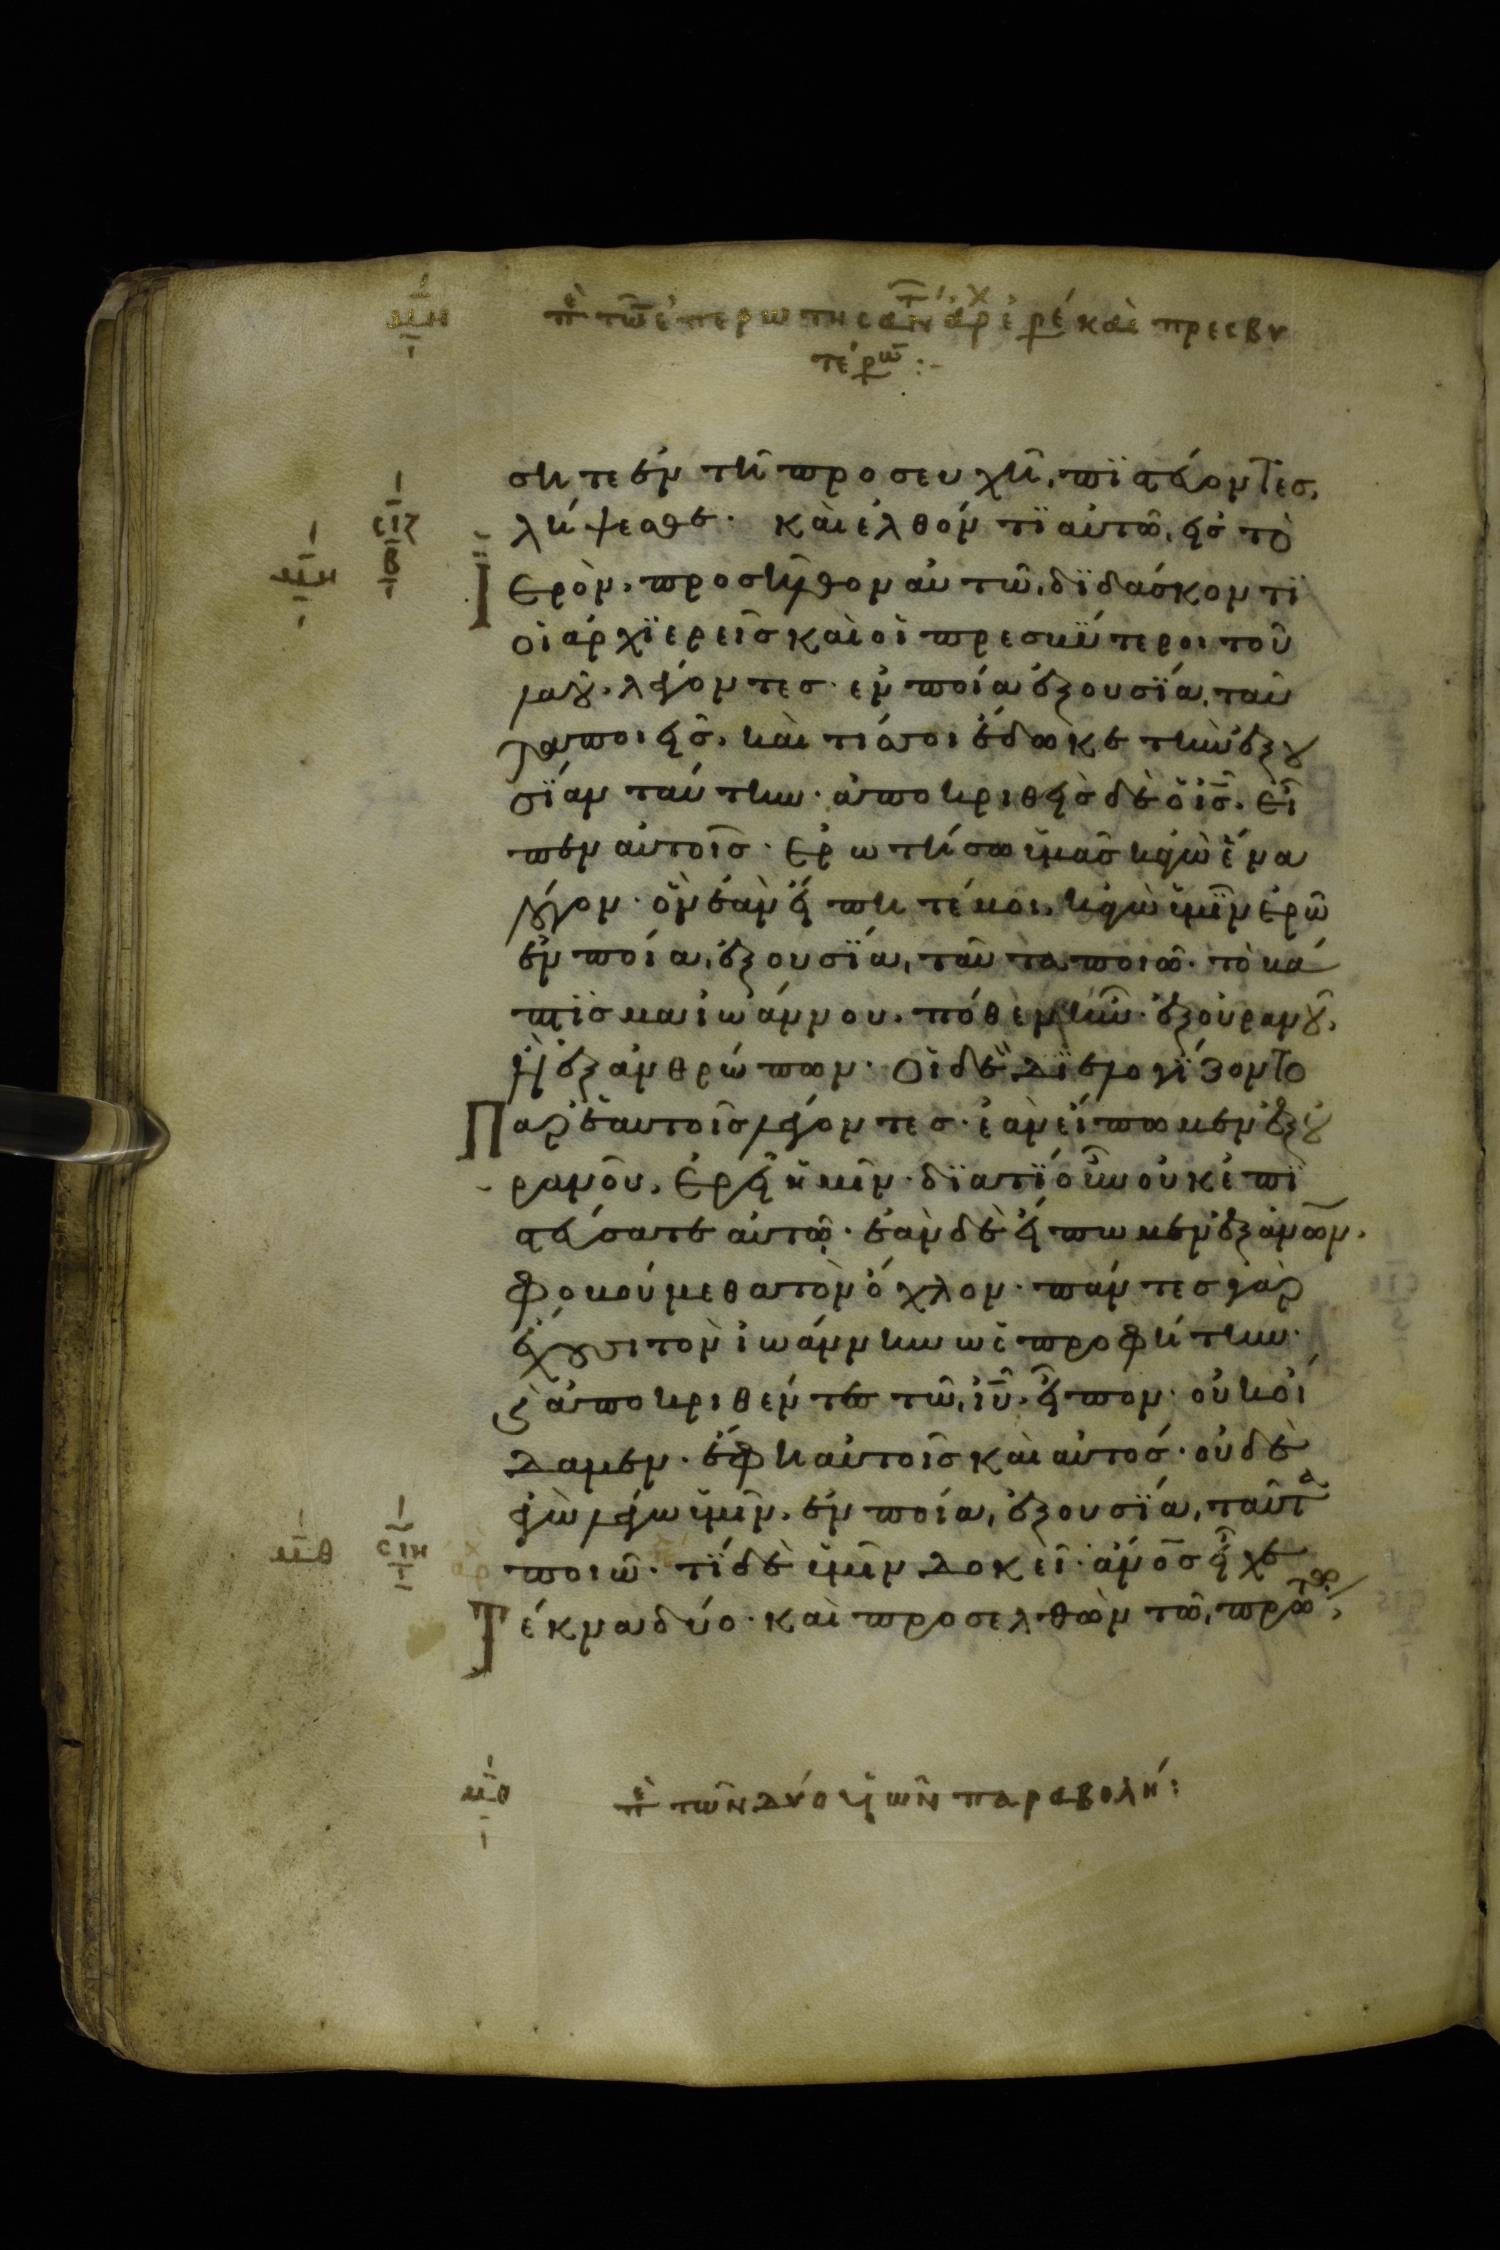 μη πε τῶν ἐπερωτησάντων ἀρχιερέ καὶ πρεσβυ
τέρω :-
σητε ἐν τῆ προσευχῆ, πϊστεύοντες,
λήψεσθε · καὶ ἐλθόντϊ αὐτῶ, εἰς τὸ
σιζ
β
μη
Ϊερὸν, προσῆλθον αὐτῶ, δϊδάσκοντϊ
οἱ ἀρχϊερεῖς καὶ οἱ πρεσβύτεροι τοῦ
λαοῦ, λέγοντες · ἐν ποία ἐξουσϊα, ταῦ
τα ποιεῖς, καὶ τίς σοι ἔδωκε τὴν ἐξου
σϊαν ταύτην · ἀποκριθεὶς δὲ ὁ ις, εἶ
πεν αὐτοῖς · ἐρωτήσω ὑμᾶς κἀγὼ ἕνα
λόγον · ὃν ἐὰν εἴπητέ μοι, κἀγὼ ὑμῖν ἐρῶ
ἐν ποία, ἐξουσϊα, ταῦτα ποιῶ · τὸ βά
πτϊσμα ἰωάννου, πόθεν ἦν · ἐξ οὐρανοῦ,
ἢ ἐξ ἀνθρώπων · οἱ δὲ δϊελογϊζοντο
Παρ' ἑαυτοῖς λέγοντες · ἐὰν εἴπωμεν ἐξ οὐ
ρανοῦ, ἐρεῖ ἡμῖν · δϊατϊ οὖν οὐκ ἐπϊ
στεύσατε αὐτῶ · ἐὰν δὲ εἴπωμεν ἐξ ἀνων,
φοβούμεθα τὸν ὄχλον · πάντες γὰρ
ἔχουσι τὸν ἰωάννην ὡς προφήτην ·
ϗ ἀποκριθέντες τῶ, ιυ, εἶπον · οὐκ οἴ
δαμεν · ἔφη αὐτοῖς καὶ αὐτός · οὐδὲ
ἐγὼ λέγω ὑμῖν, ἐν ποία, ἐξουσϊα, ταῦτα
μθ
σιη
ι
ποιῶ · τϊ δὲ ὑμῖν δοκεῖ · ἀνος εἶχε
Τέκνα δύο · καὶ προσελθὼν τῶ, πρώτω,
μθ πε τῶν δύο υἱῶν παραβολή :